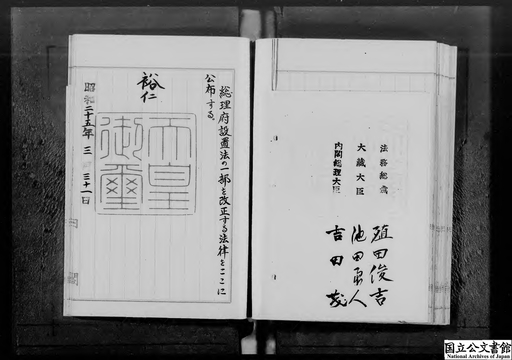 総理府設置法の一部を改正する法律をここに
公布する。
裕仁
天皇
御璽
昭和二十五年三月三十一日
法務総裁
大蔵大臣
内閣総理大臣
殖田俊吉
池田勇人
吉田茂
国立公文書館
National Archives of Japan